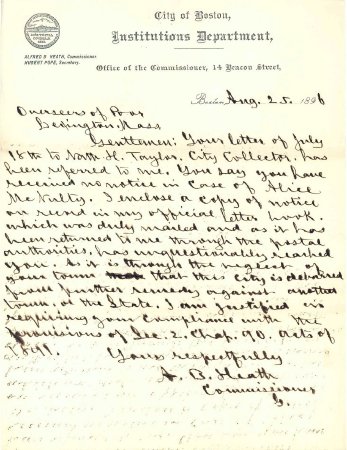 City of Boston,
Institutions Department,
ALFRED B. HEATH, Commissioner.
HUBERT POPE, Secretary.
Office of the Commissioner, 14 Beacon Street,
Boston, Aug. 25. 1896
Overseers of Poor
Lexington Mass
Gentlemen: Your letter of July
18th to Nath H. Taylor, City Collector, has
been referred to me. You say you have
received no notice in case of Alice
McNulty. I enclose a copy of notice
on record in my official letter book.
which was duly mailed and as it has
been returned to me through the postal
authorities, has unquestionably reached
you. As it is through the neglect
your town that this city is debarred
from further remedy against another
town of the State, I am justified in
requiring your compliance with the
provisions of Sec. 2. Chap. 90. Acts of
1891.
Yours respectfully
A. B. Heath
Commissioner